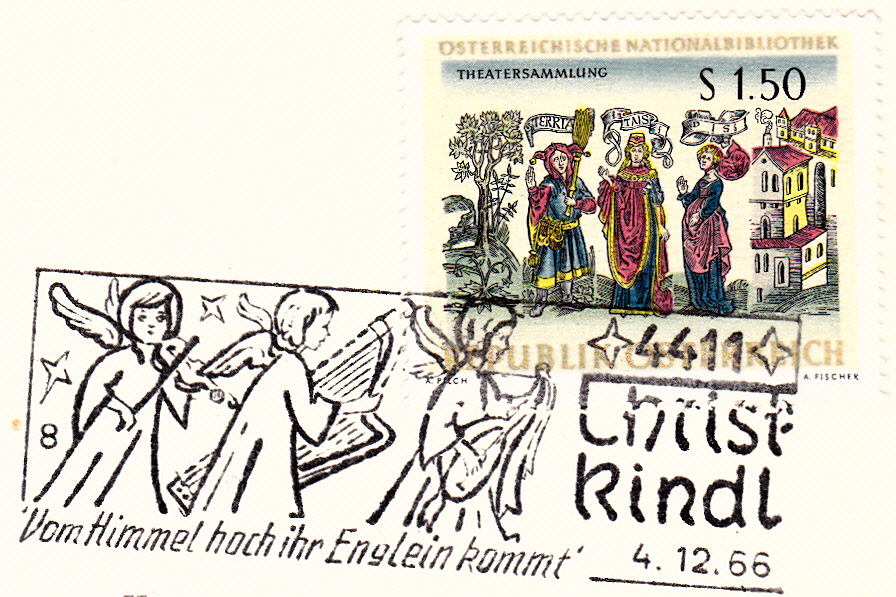 ÖSTERREICHISCHE NATIONALBIBLIOTHEK
THEATERSAMMLUNG
S 1.50
TAIS
REPUBLIK ÖSTERREICH
A. PILCH
A. FISCHER
4411
Christ-
kindl
4.12.66
8
'Vom Himmel hoch ihr Englein kommt'